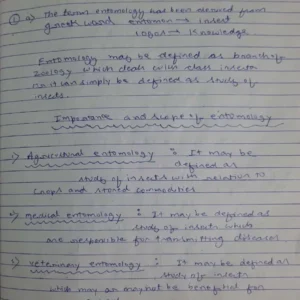 ① a) The terms entomology has been derived from
greek word entomon → insect
logos → Knowledge
Entomology may be defined as branch of
zoology which deals with class insecta
or it can simply be defined as study of
insects.
Importance and scope of entomology
1) Agricultural entomology : It may be
defined as
study of insects with relation to
crops and stored commodities
2) medical entomology : It may be defined as
study of insects which
are responsible for transmitting diseases
3) veterinary entomology : It may be defined as
study of insects
which may or may not be beneficial for